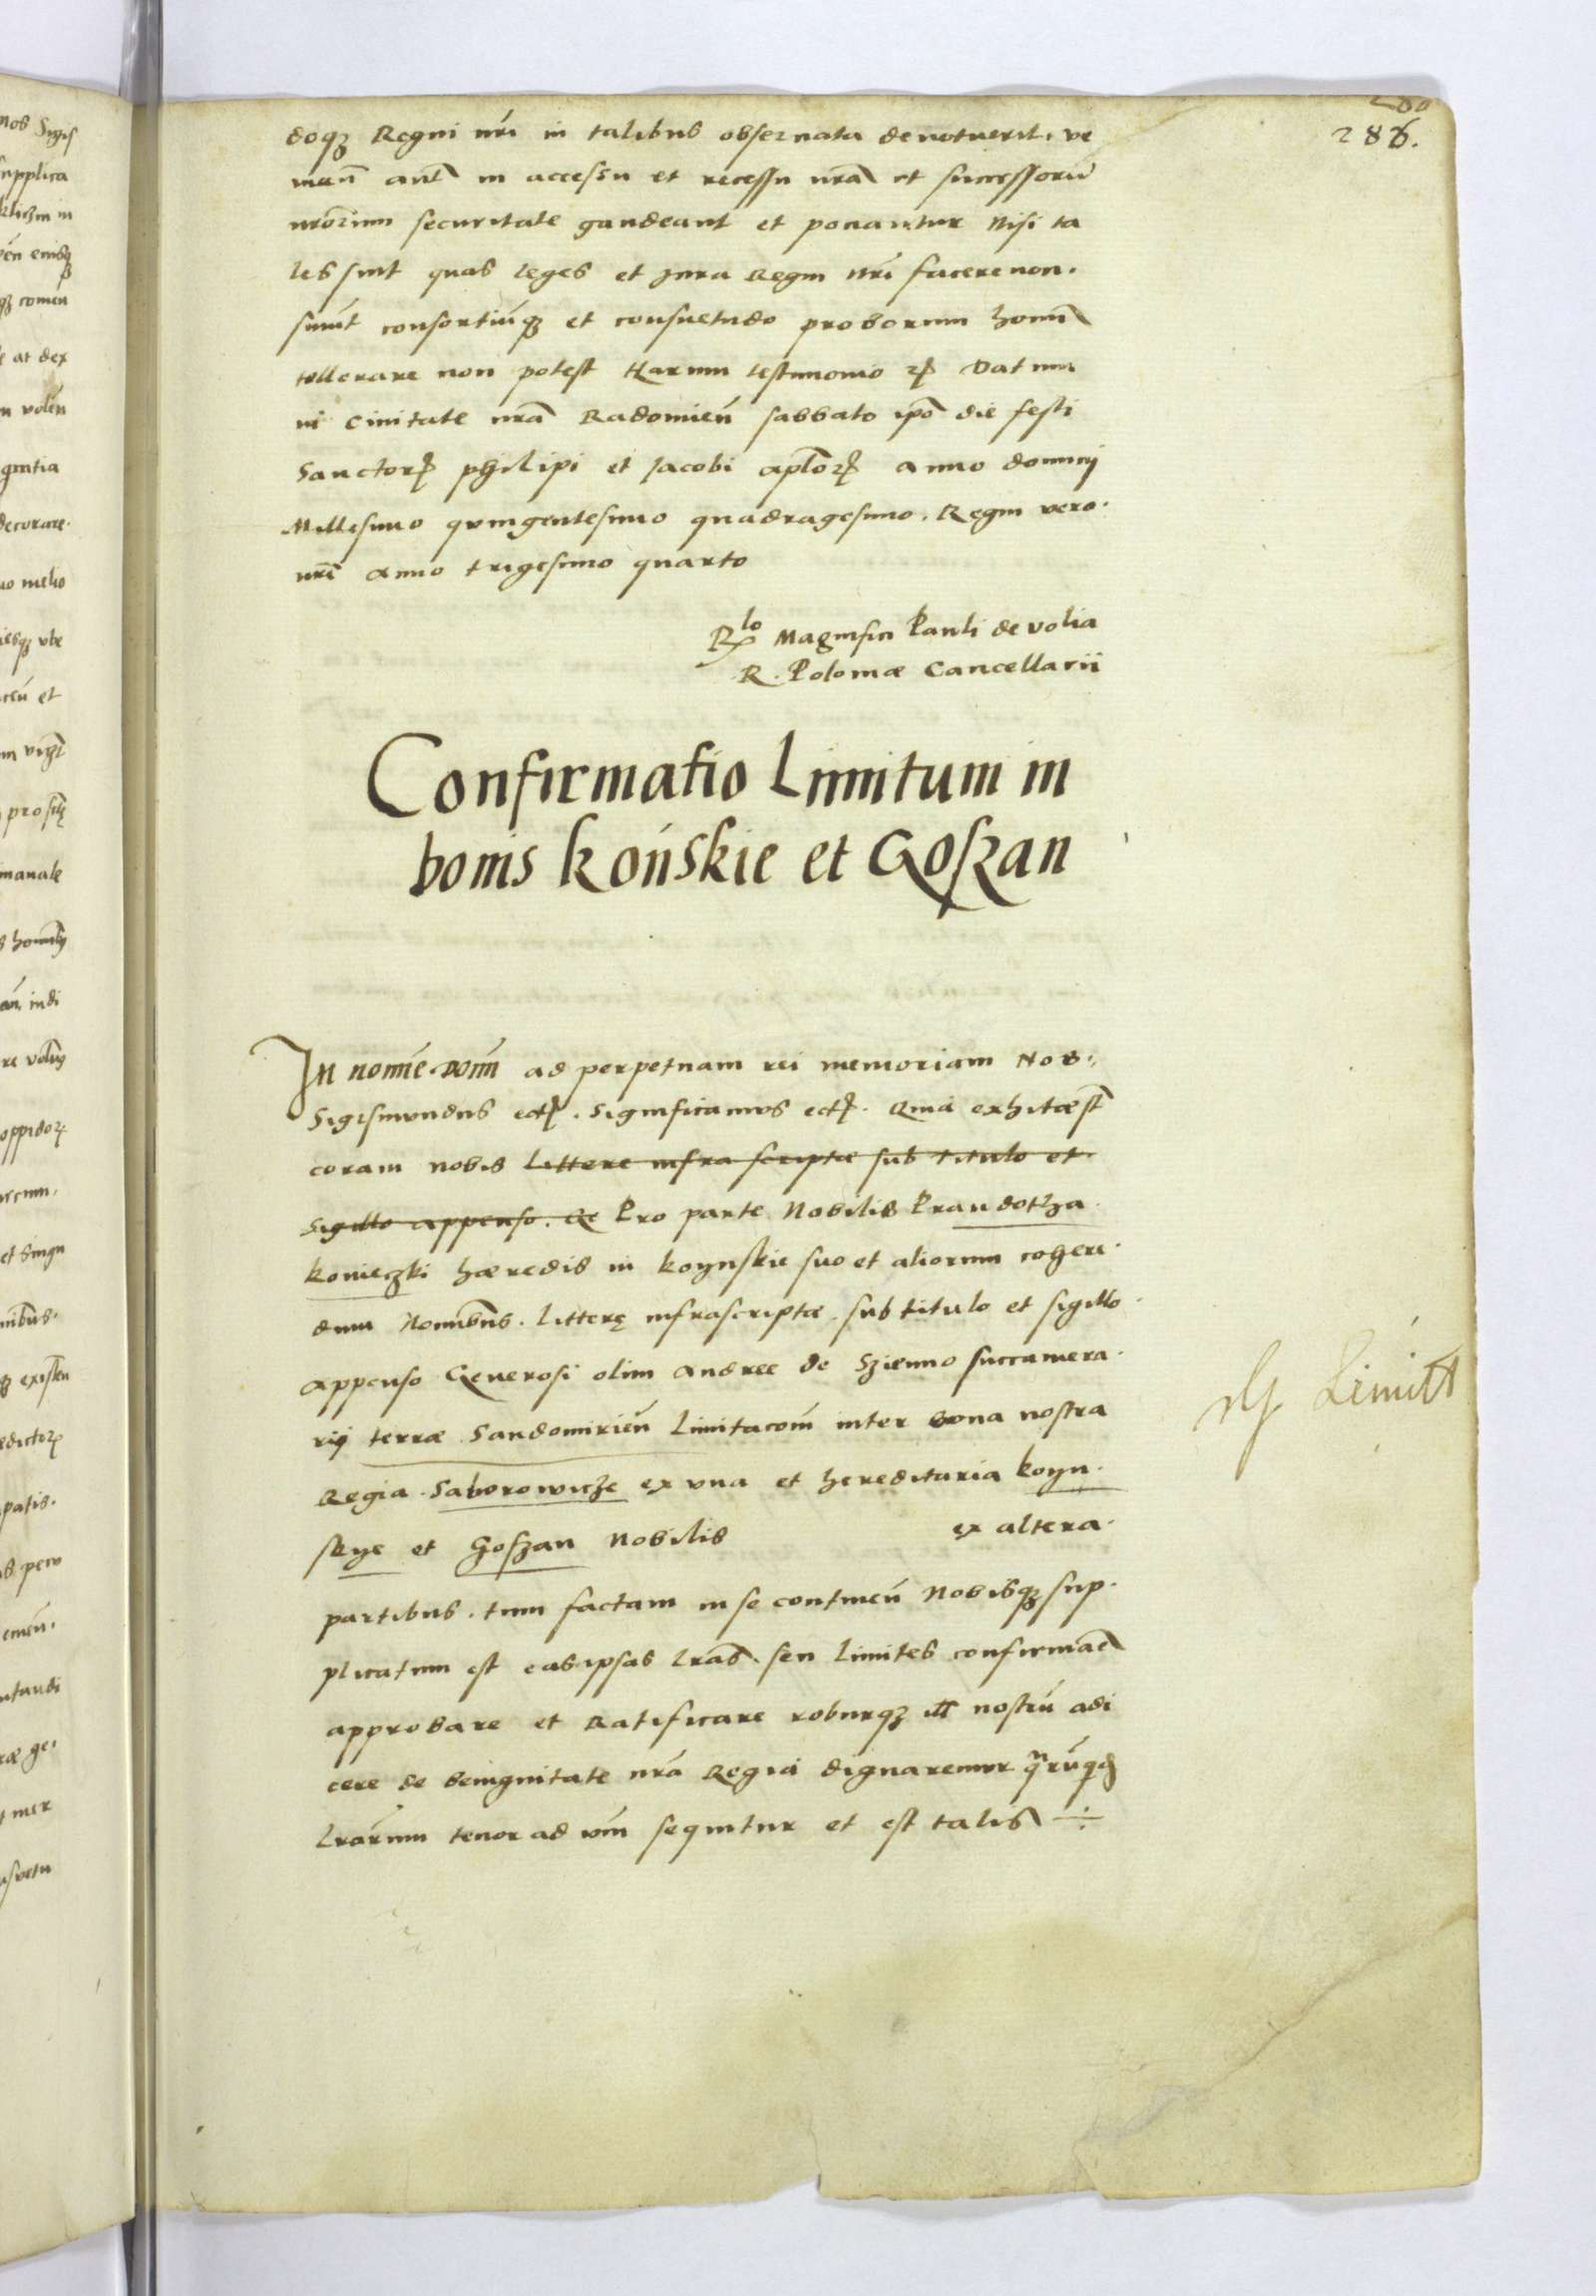 286.
doqȝ Regni nri in talibus obseruata denotuerit. ve
in accessu et recessu nra et successorũ
nrorum securitate gaudeant et ponantur Nisi ta
les sint quas leges et Jura Regni nri facere non.
sinũt consortiũqȝ et consuetudo proborum homin
tollerare non potest Harum testimonio Datum
in Ciuitate nra Radomień sabbato ipo die festi
Sanctorꝝ philipi et Jacobi aptorꝝ anno dominj
Millesimo quingentesimo quadragesimo. Regni vero.
nri anno trigesimo quarto
Rlo Magnifici Pauli de volia
R. Poloniæ Cancellarii
Confirmatio Limitum in
bonis Końskie et Goszan
In nomie Doni ad perpetuam rei memoriam Nos.
Sigismundus ectꝝ. Significamus ectꝝ. Quia exhitæ st
coram nobis Littere infra scriptæ sub titulo et
Sigillo appenso. Qe Pro parte Nobilis Prandotha
Konieczki hæredis in Koynskie suo et aliorum cohere.
dum Nomibus. Litterę infrascriptæ sub titulo et sigillo.
appenso Generosi olim Andree de Szienno succamera.
rij terræ Sandomirień Limitacom inter bona nostra
Regia. Saborowicze ex vna et hereditaria Koyn.
skye et Goszan Nobilis ex altera.
partibus. tum factam in se continen̄ Nobisqȝ sup.
plicatum est eas ipsas lras. seu limites confirmare
approbare et Ratificare roburqȝ ill nostrũ adi
cere de benignitate nra Regia dignaremur qrũqd
Lrarum tenor ad vm sequitur et est talis ÷
Limitt